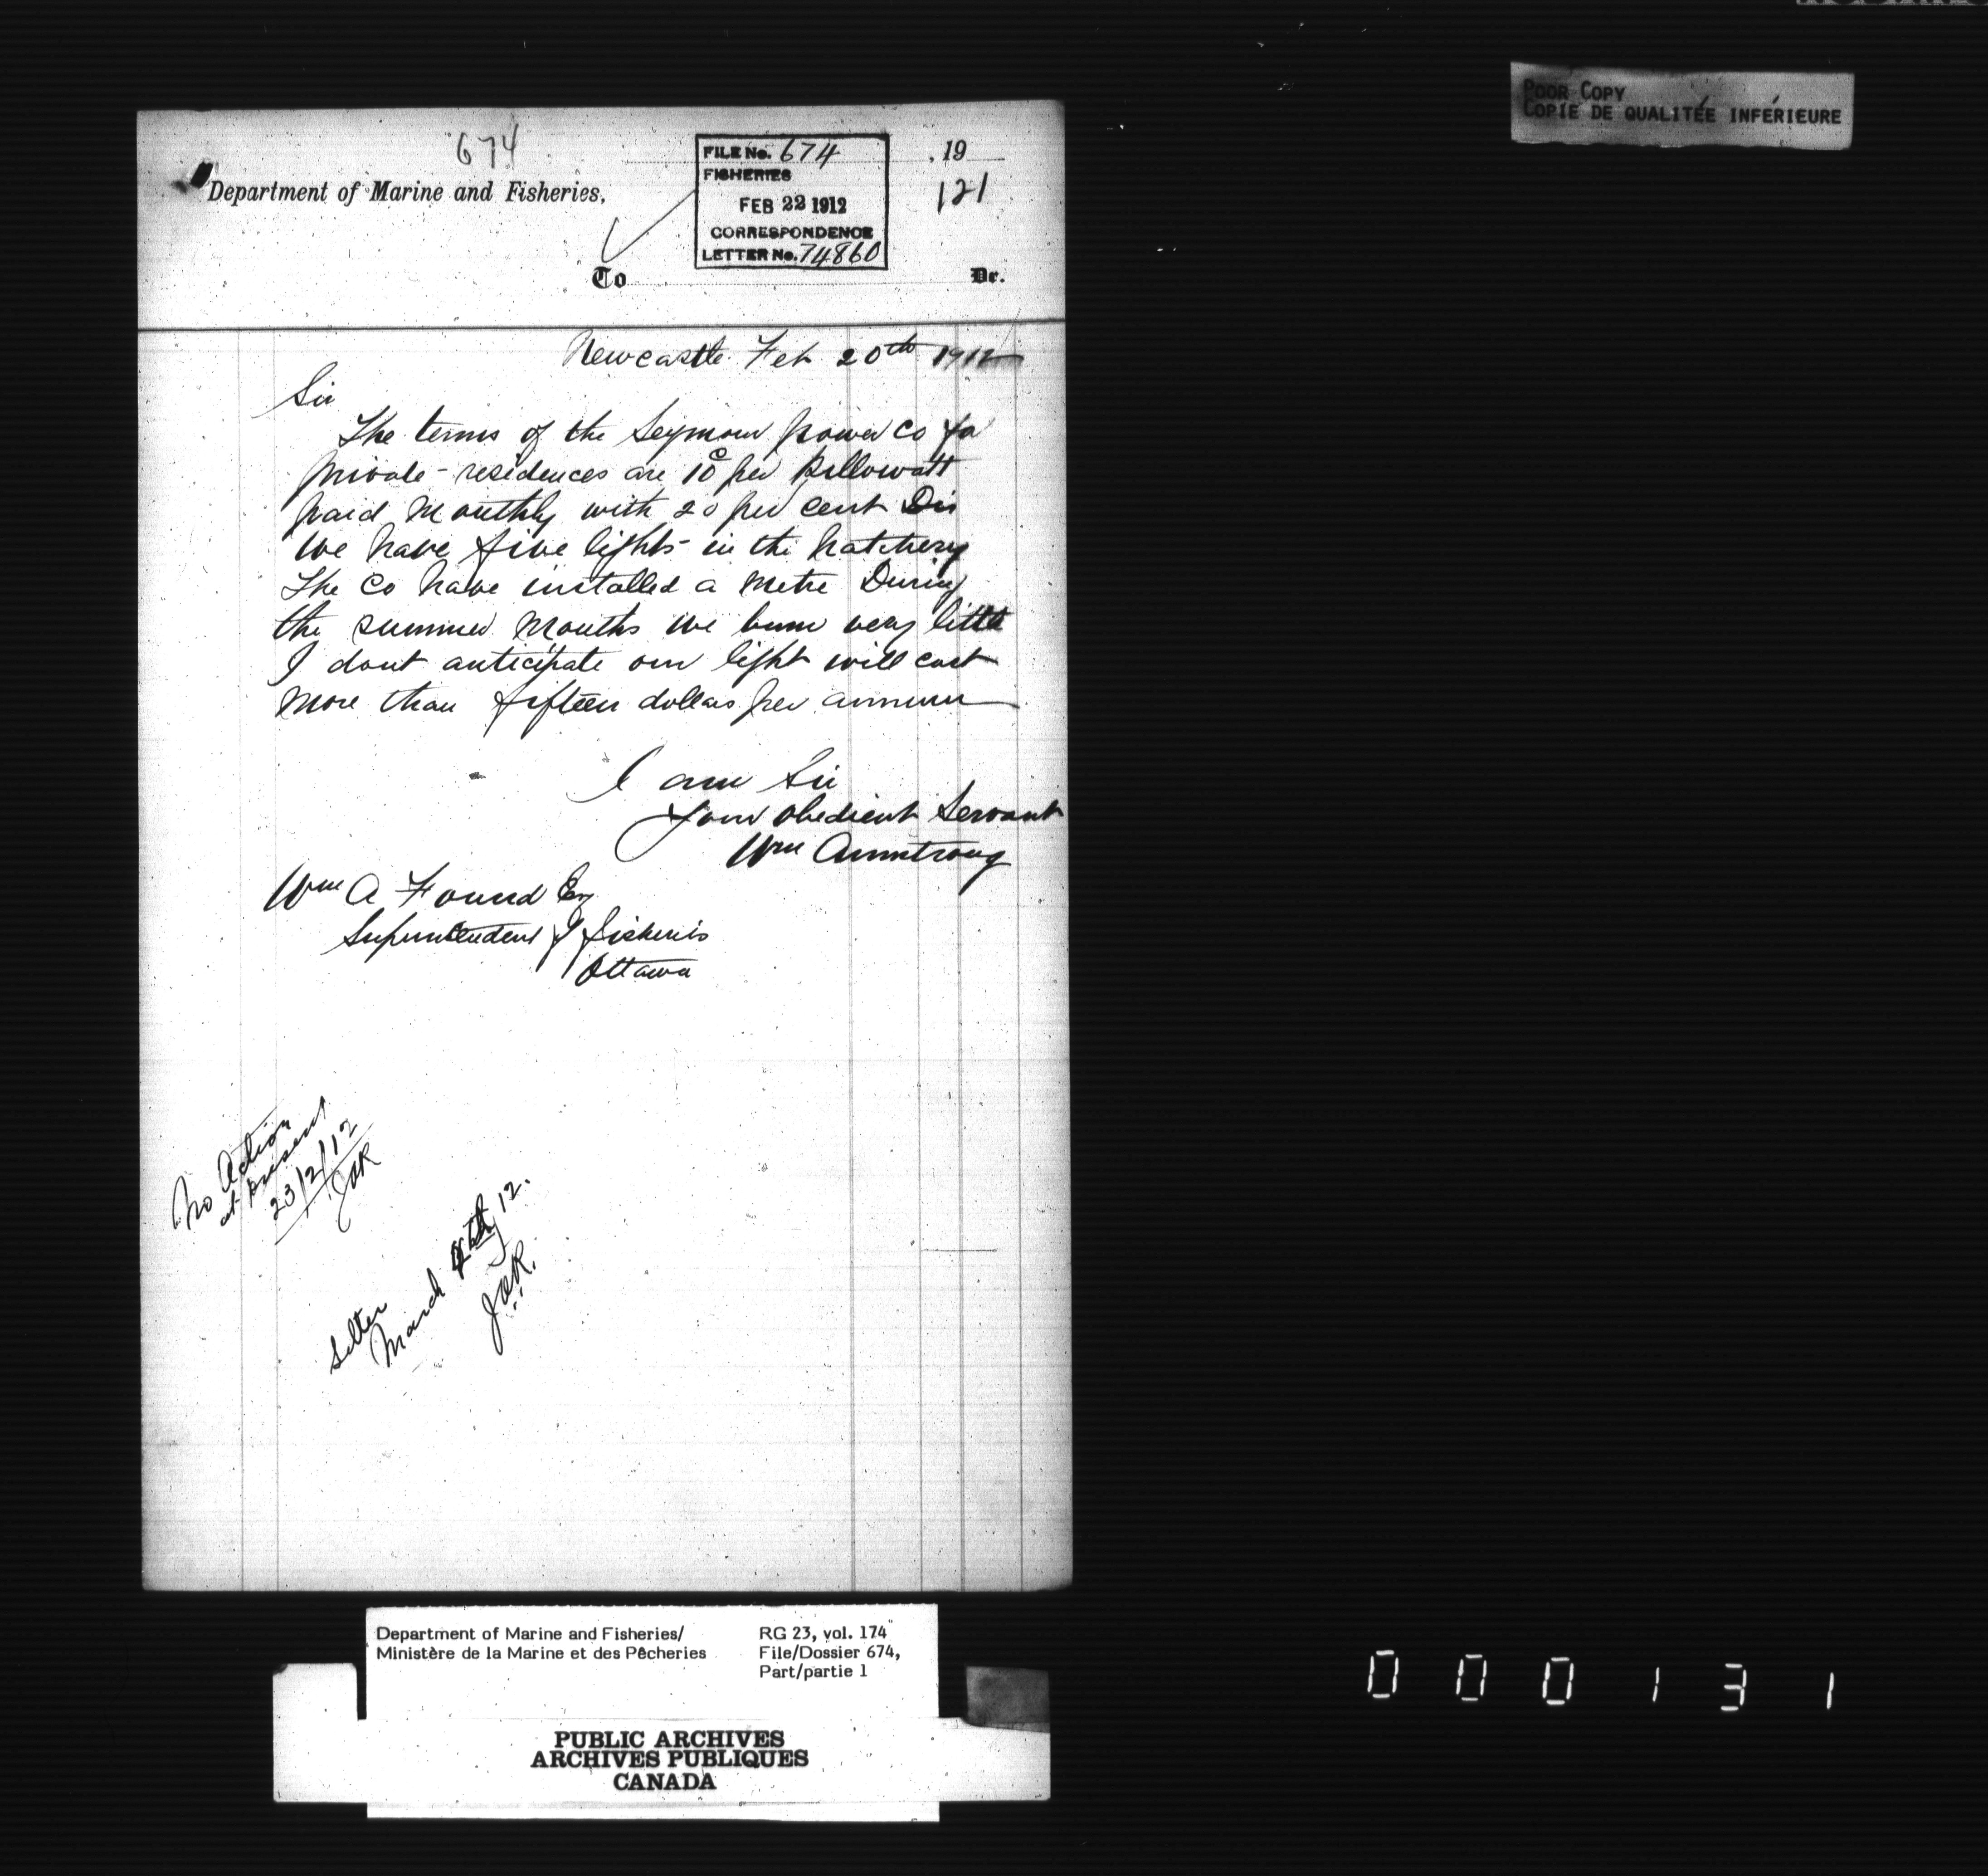 POOR COPY
COPIE DE QUALITÉE INFÉRIEURE
674
, 19
FILE No. 674
FISHERIES
FEB 22 1912
CORRESPONDENCE
LETTER No. 74860
121
Department of Marine and Fisheries,
To
Dr.
Newcastle Feb 20th 1912
Sir
The terms of the Seymour power Co for
private-residences are 10c per Killowatt
paid Monthly with 20 per cent Dis
We have five lights in the hatchery
The Co have installed a metre During
the summer Months we burn very little
I dont anticipate our light will cost
More than fifteen dollars per annum
I am Sir
Your obedient Servant
Wm Armstrong
Wm A Found Esq
Superintendent of fisheries
Ottawa
No Action
at present
23/2/12
JAR
Letter
March 12.
JAR.
Department of Marine and Fisheries/
Ministère de la Marine et des Pêcheries
RG 23, vol. 174
File/Dossier 674,
Part/partie 1
PUBLIC ARCHIVES
ARCHIVES PUBLIQUES
CANADA
000131